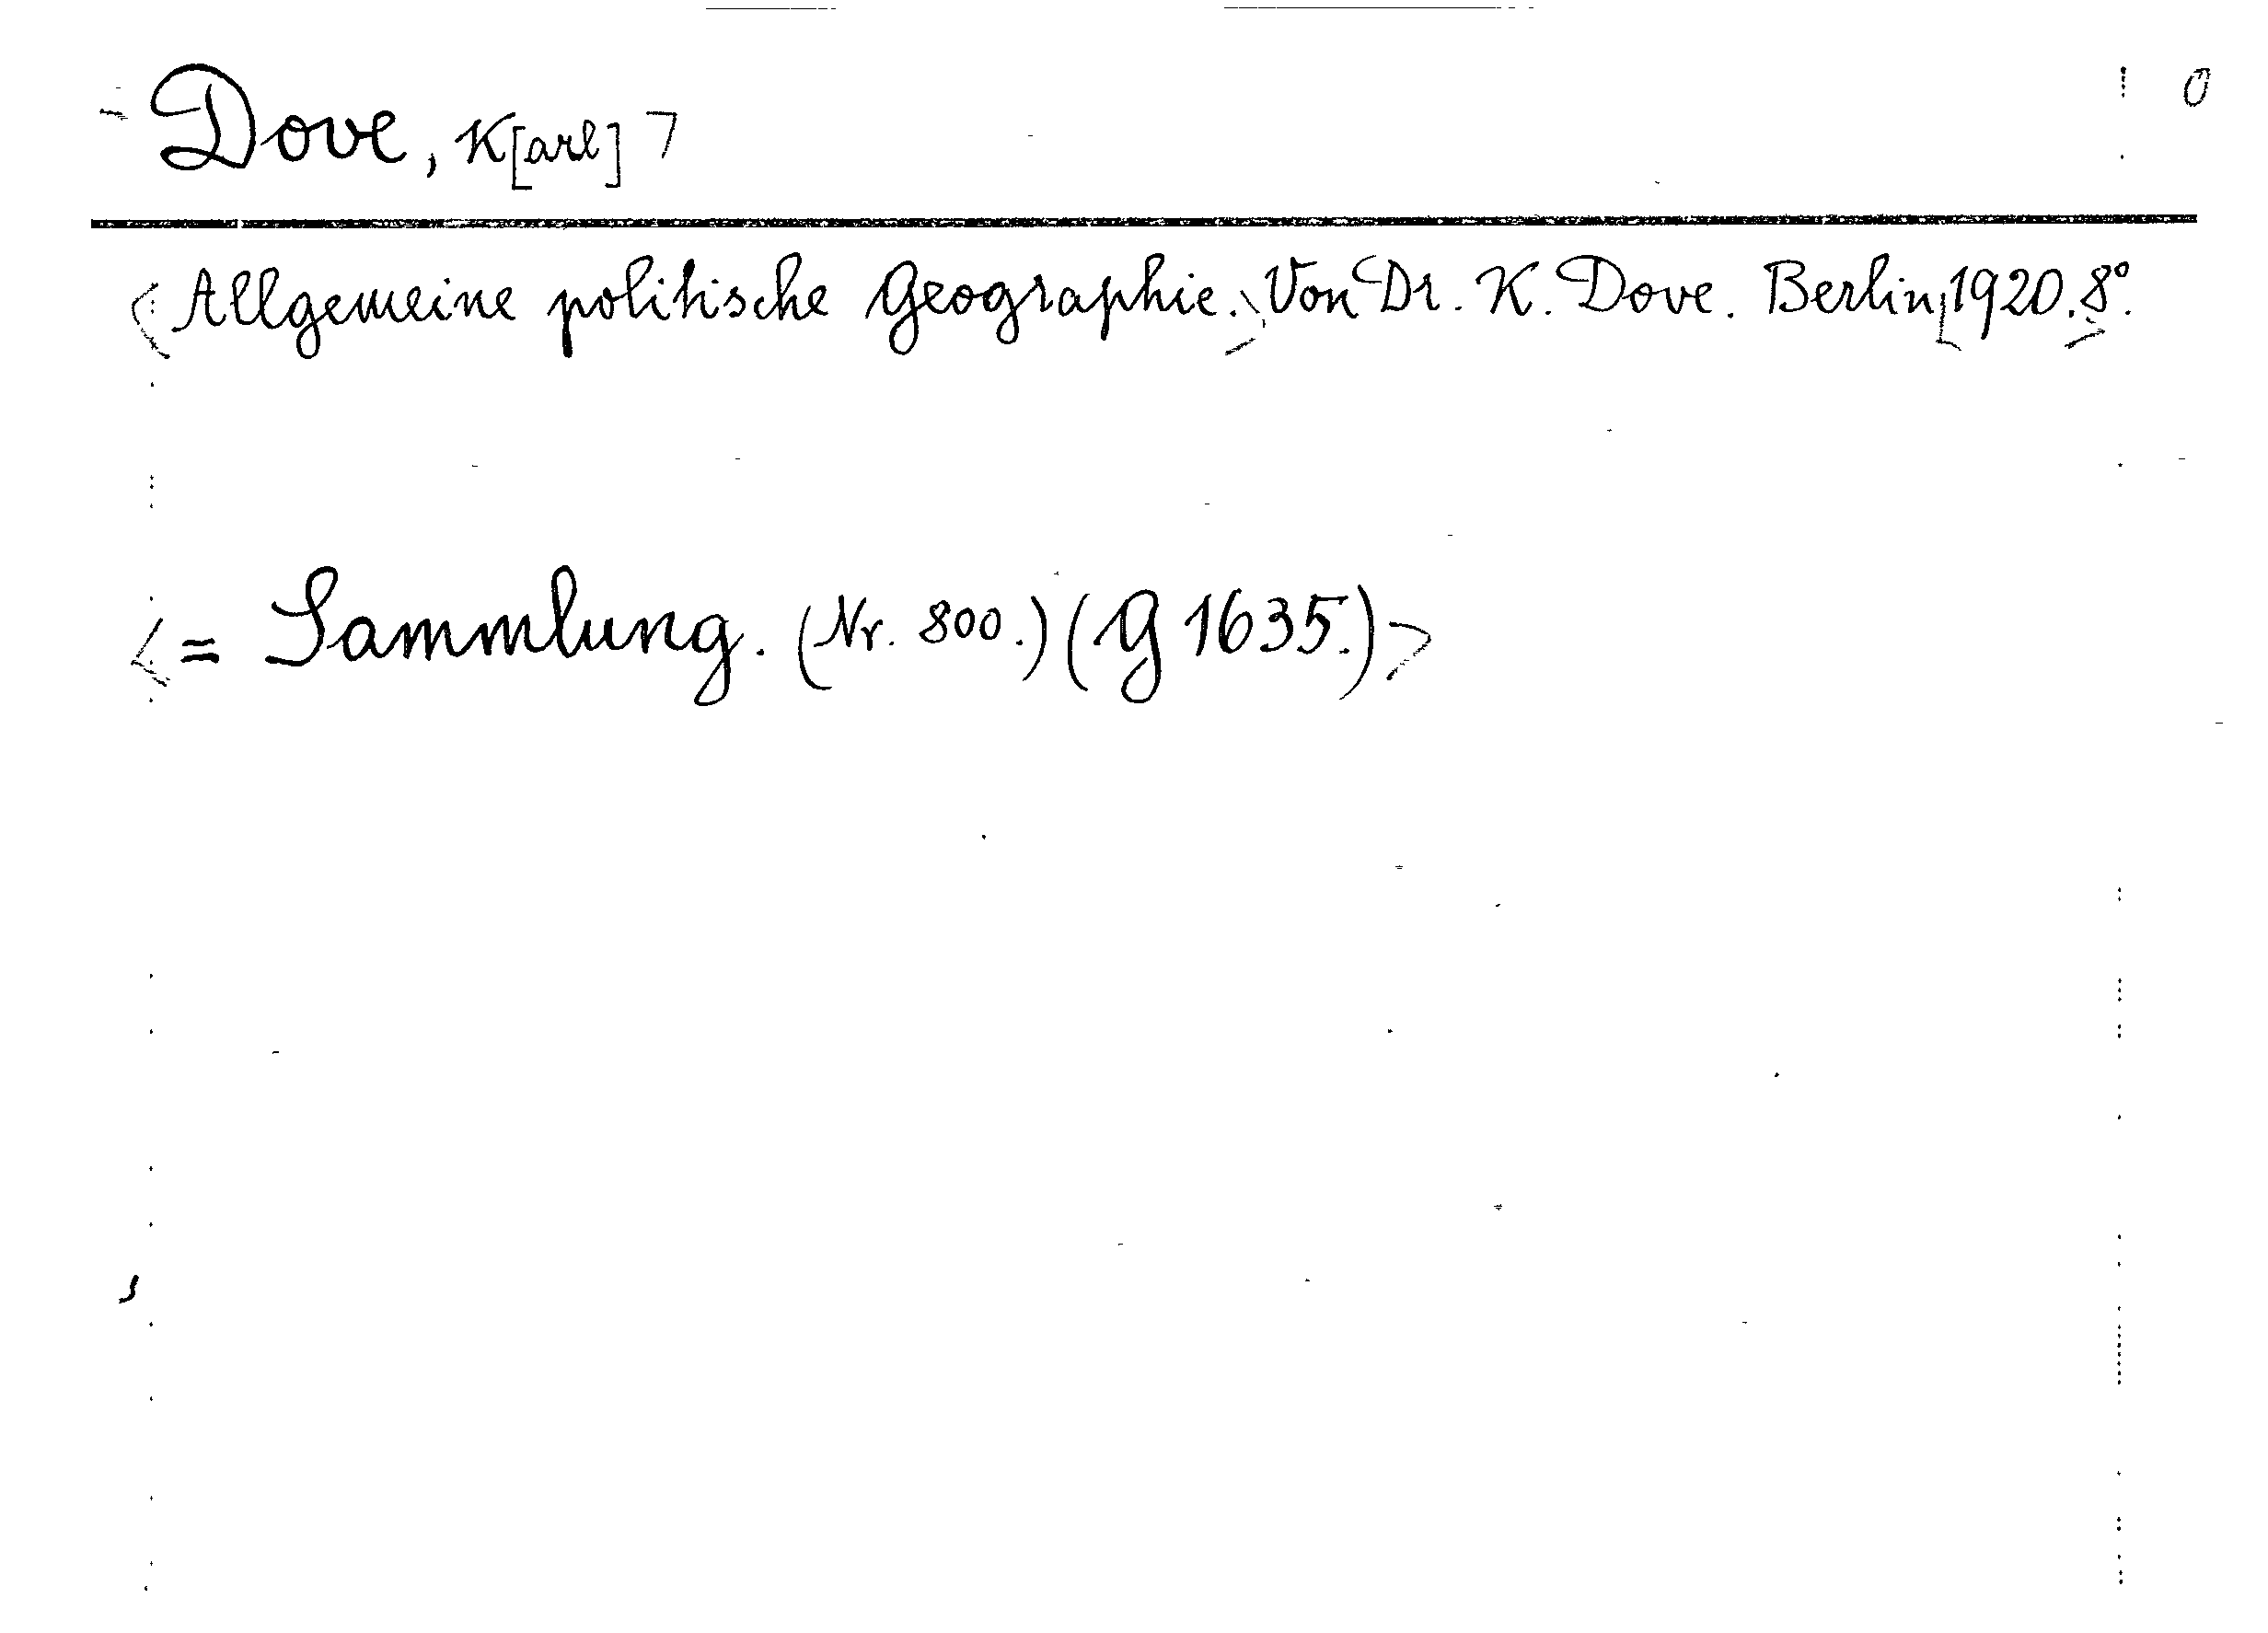 Dove, K[arl]
Allgemeine politische Geographie. Von Dr. K. Dove. Berlin 1920. 8°.
= Sammlung. (Nr. 800.) (G 1635.)